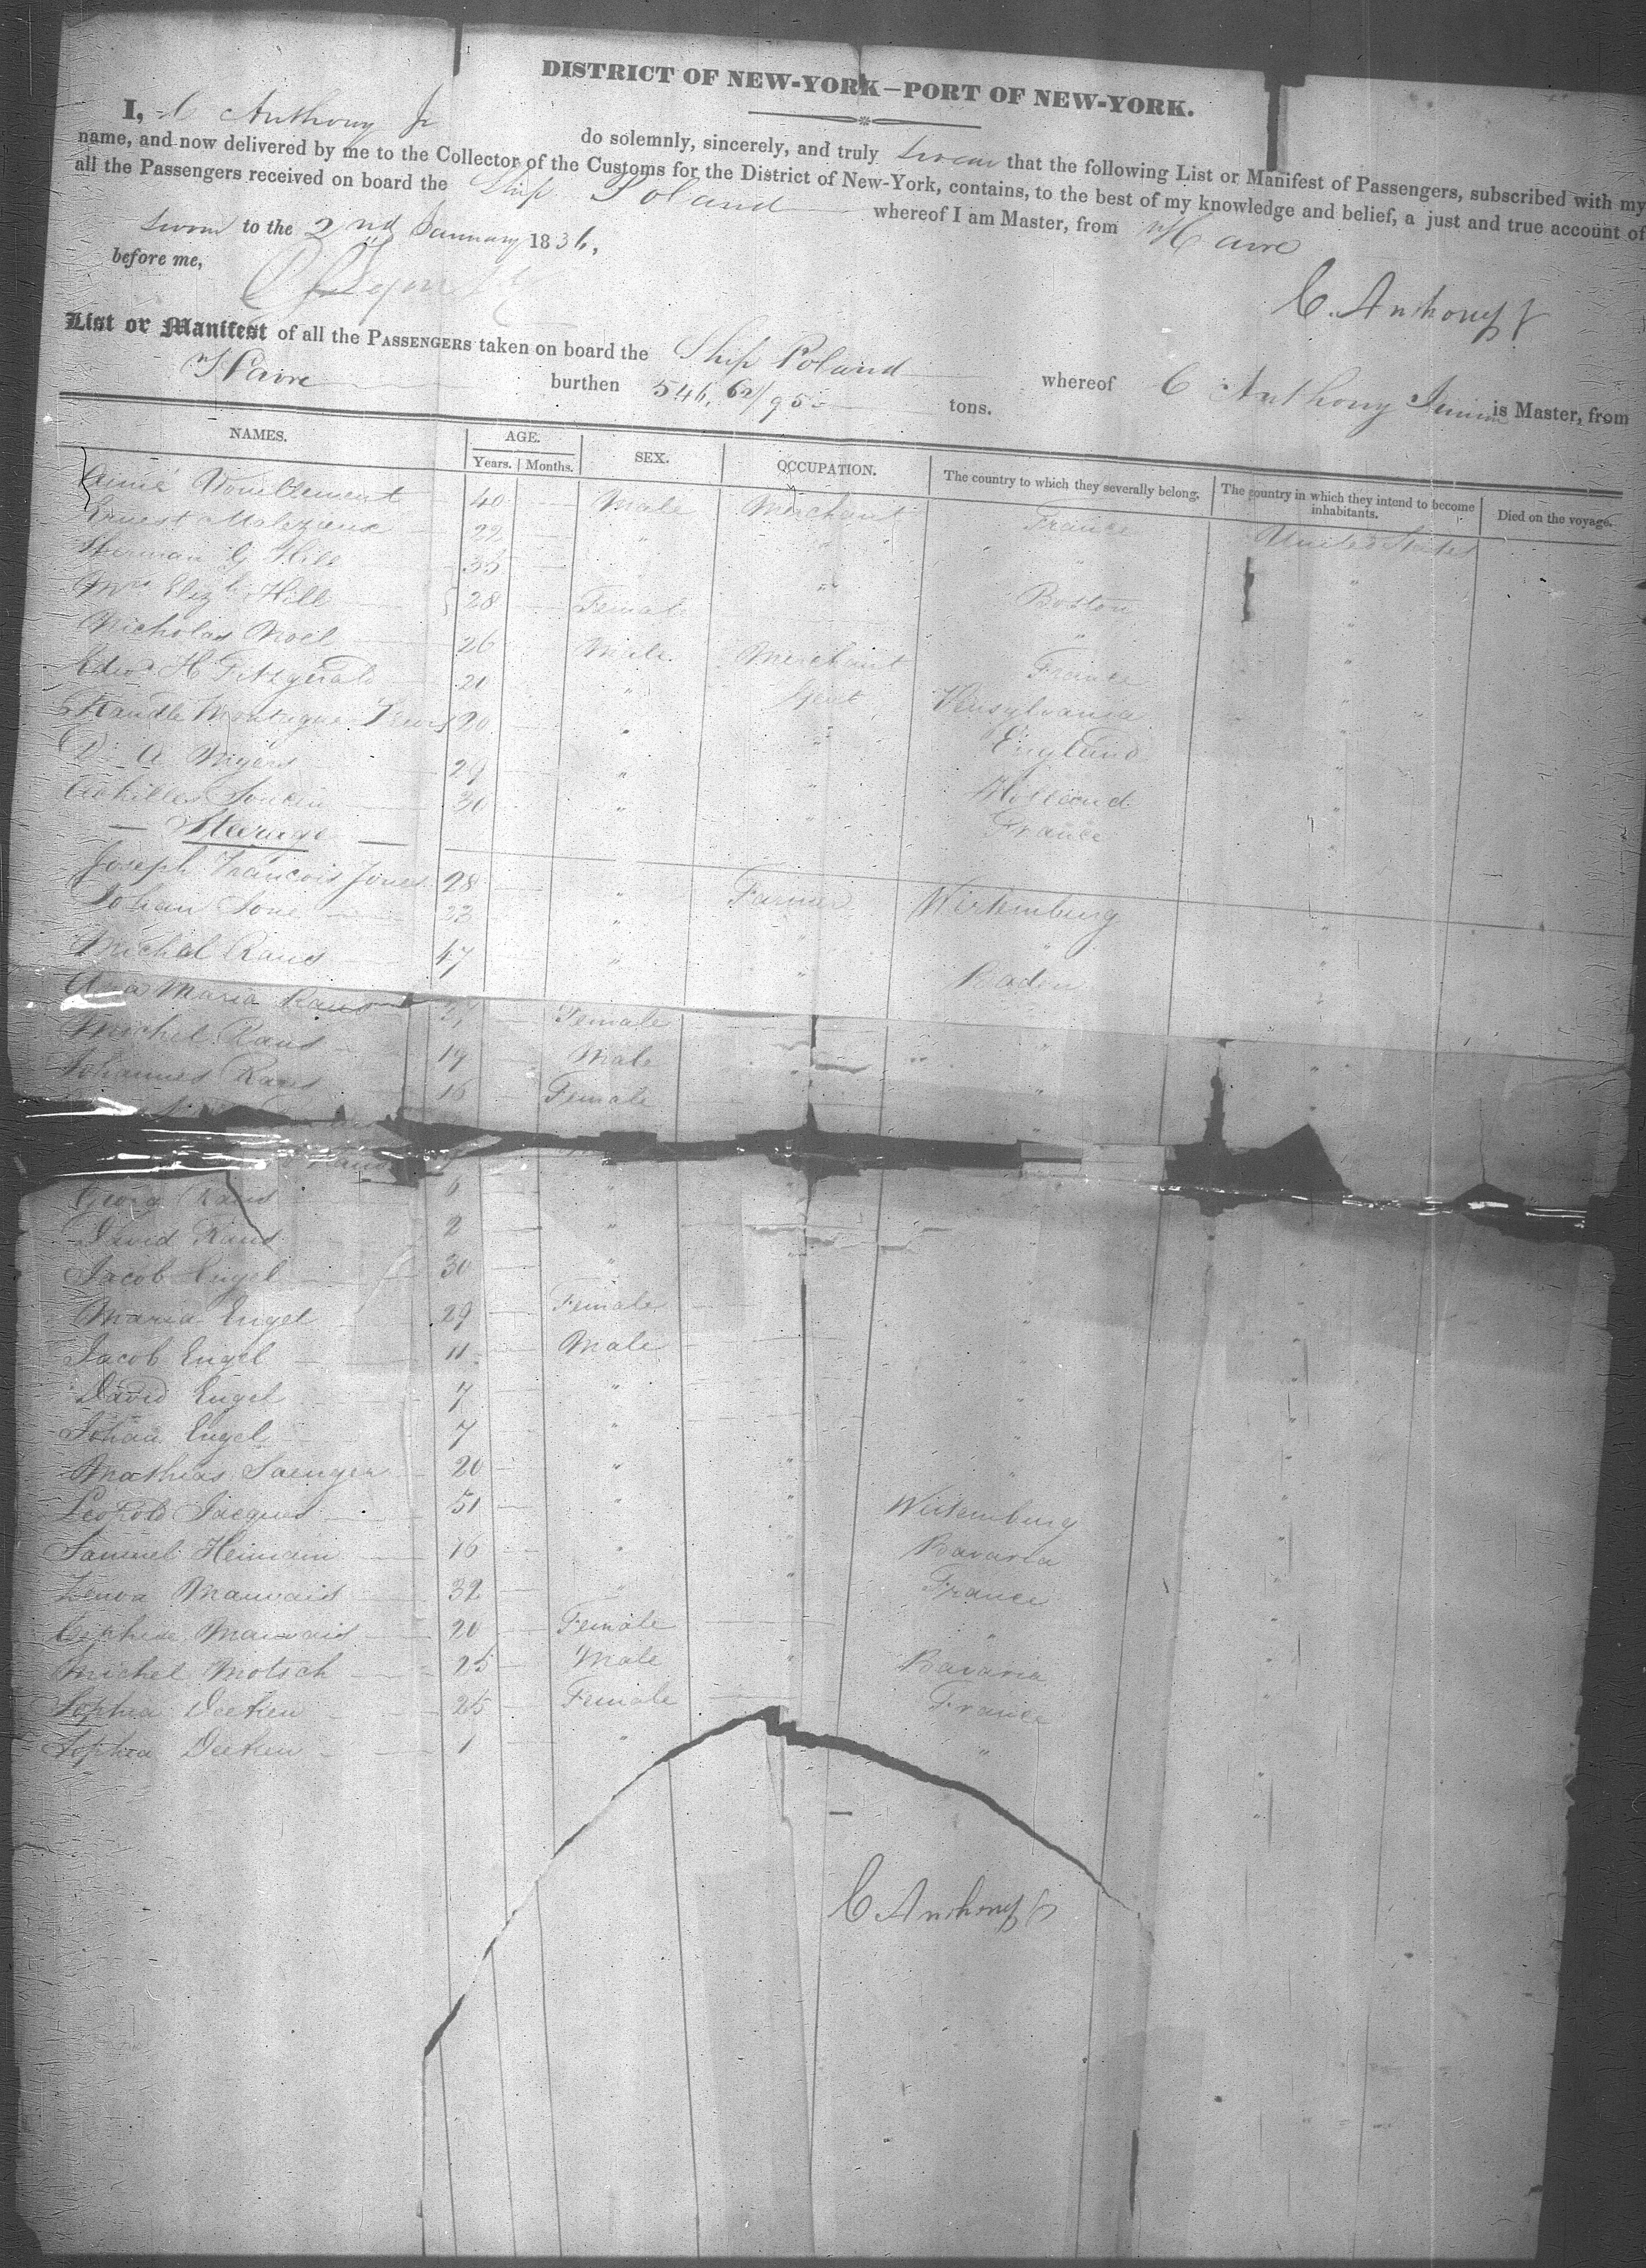 DISTRICT OF NEW-YORK—PORT OF NEW-YORK.
I, C Anthony Jr do solemnly, sincerely, and truly swear that the following List or Manifest of Passengers, subscribed with my
name, and now delivered by me to the Collector of the Customs for the District of New-York, contains, to the best of my knowledge and belief, a just and true account of
all the Passengers received on board the Ship Poland whereof I am Master, from Havre
Sworn to the 2nd January 1836,
before me,
C. Anthony Jr
List or Manifest of all the PASSENGERS taken on board the Ship Poland whereof C Anthony Junior is Master, from
Havre burthen 546, 62/95 tons.
NAMES. AGE. Years. Months. SEX. OCCUPATION. The country to which they severally belong. The country in which they intend to become inhabitants. Died on the voyage.
Aimé 40 Male Merchant France United States
Ernest Malezieux 22 " " " "
Herman G Hill 35 " " Boston "
Mrs Elizh Hill 28 Female " "
Nicholas Noel 26 Male Merchant France "
Edwd H Fitzgerald 21 " Gent Pensylvania "
Randle Montague 20 " " England "
D. A. Myers 29 " " Holland "
Achilles 30 " " France "
— Steerage —
Joseph Francois Jones 28 " Farmer Wirtemburg "
Johan 23 " " " "
Michel Raus 47 " " Baden "
Ana Maria Raus 37 Female "
Michel Raus 19 Male " " "
Johannes Raus 16 Female "
Raus
Georg Raus 6 "
David Raus 2 "
Jacob Engel 30 " "
Maria Engel 29 Female "
Jacob Engel 11 Male "
David Engel 7 " "
Johan Engel 7 " "
Mathias Saenger 20 " " "
Leopold Jacques 51 " " Wirtemburg "
Samuel Heimann 16 " " Bavaria "
Mauvais 32 " " France "
Mauvais 20 Female " "
Michel Motsch 25 Male " Bavaria "
Sophia Deeken 25 Female France "
Sophia Deeken 1 " " "
C Anthony Jr